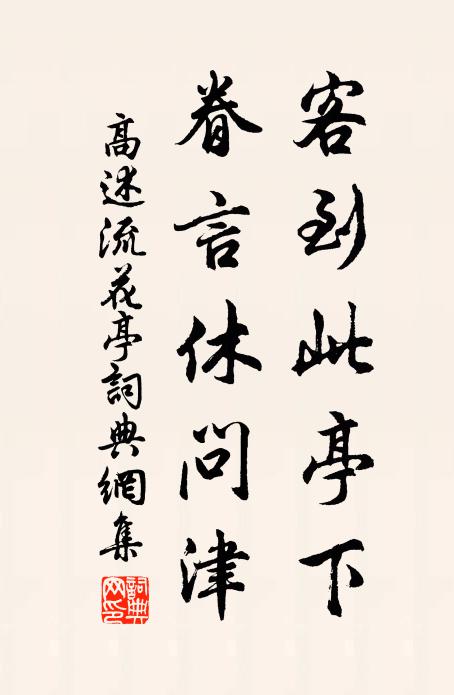 客到此亭下
眷言休問津
高述流花亭詞典網集
詞典網印